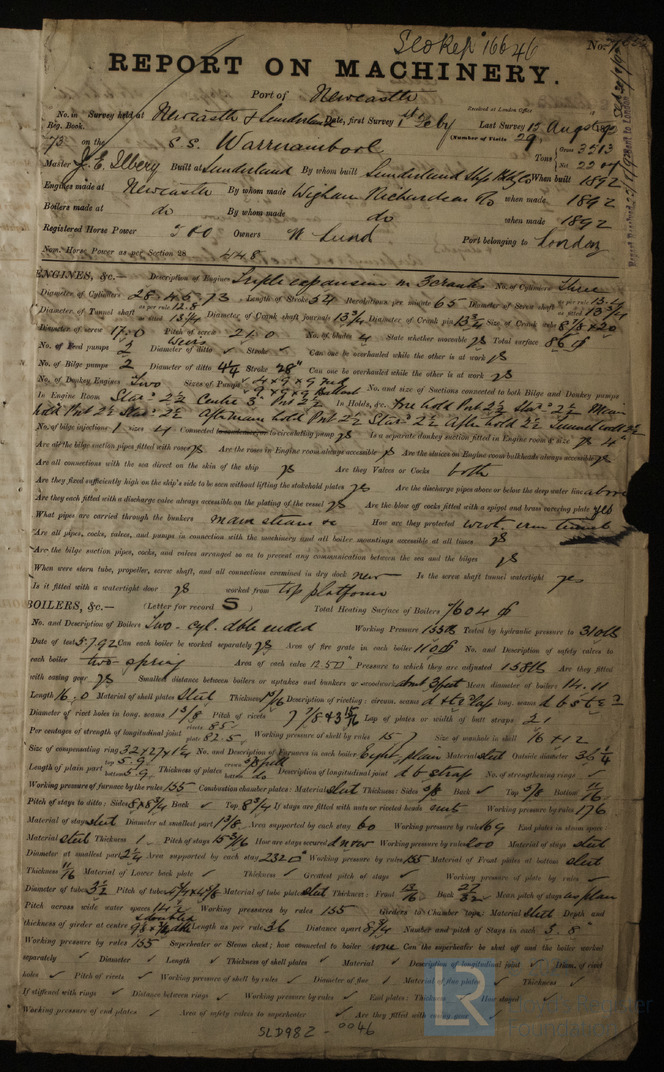 Sld Rep 16646
No.
REPORT ON MACHINERY.
Port of Newcastle
Received at London Office
No. in Reg. Book. Survey held at Newcastle & Sunderland Date, first Survey 1st Feby Last Survey 12 August 1892
(Number of Visits 29)
75 on the S.S. Warrnambool Tons Gross 3513 Net 2207
Master J. E. Ilbery Built at Sunderland By whom built Sunderland When built 1892
Engines made at Newcastle By whom made Wigham Richardson & Co when made 1892
Boilers made at do By whom made do when made 1892
Registered Horse Power Owners W. Lund Port belonging to London
Nom. Horse Power as per Section 28 448
ENGINES, &c.— Description of Engines Triple expansion on 3 cranks No. of Cylinders Three
Diameter of Cylinders 28.45.73 Length of Stroke 54 Revolutions per minute 65 Diameter of Screw shaft as per rule as fitted 13 3/4
Diameter of Tunnel shaft as per rule 12.8 as fitted 13 1/4 Diameter of Crank shaft journals 13 3/4 Diameter of Crank pin 13 3/4 Size of Crank webs 8 1/8 × 20
Diameter of screw 17.0 Pitch of screw 21.0 No. of blades 4 State whether moveable yes Total surface 86
No. of Feed pumps 2 Weirs Diameter of ditto Stroke Can one be overhauled while the other is at work yes
No. of Bilge pumps 2 Diameter of ditto 4 1/4 Stroke 28" Can one be overhauled while the other is at work yes
No. of Donkey Engines Two Sizes of Pumps No. and size of Suctions connected to both Bilge and Donkey pumps
In Engine Room Star 2 1/2 Centre 3 Port 2 1/2 In Holds, &c. Fore hold Port 2 1/2 Star 2 1/2 Main
hold Port 2 1/2 Star 2 1/2 After main hold Port 2 1/2 Star 2 1/2 After hold 2 1/2 Tunnel well 2 1/2
No. of bilge injections 1 sizes 4 Connected to circulating pump yes Is a separate donkey suction fitted in Engine room & size yes 4"
Are all the bilge suction pipes fitted with roses yes Are the roses in Engine room always accessible yes Are the sluices on Engine room bulkheads always accessible yes
Are all connections with the sea direct on the skin of the ship yes Are they Valves or Cocks both
Are they fixed sufficiently high on the ship's side to be seen without lifting the stokehold plates yes Are the discharge pipes above or below the deep water line above
Are they each fitted with a discharge valve always accessible on the plating of the vessel yes Are the blow off cocks fitted with a spigot and brass covering plate yes
What pipes are carried through the bunkers main steam How are they protected wrot. iron
Are all pipes, cocks, valves, and pumps in connection with the machinery and all boiler mountings accessible at all times yes
Are the bilge suction pipes, cocks, and valves arranged so as to prevent any communication between the sea and the bilges yes
When were stern tube, propeller, screw shaft, and all connections examined in dry dock new Is the screw shaft tunnel watertight yes
Is it fitted with a watertight door yes worked from top platform
BOILERS, &c.— (Letter for record S) Total Heating Surface of Boilers 7604
No. and Description of Boilers Two - cyl. dble ended Working Pressure 155 lb Tested by hydraulic pressure to 310 lb
Date of test 5.7.92 Can each boiler be worked separately yes Area of fire grate in each boiler 110 No. and Description of safety valves to
each boiler two spring Area of each valve Pressure to which they are adjusted 158 lb Are they fitted
with easing gear yes Smallest distance between boilers or uptakes and bunkers or woodwork Mean diameter of boilers 14.11
Length 16.0 Material of shell plates Steel Thickness 1 3/16 Description of riveting: circum. seams long. seams
Diameter of rivet holes in long. seams 1 3/8 Pitch of rivets Lap of plates or width of butt straps 21
Per centages of strength of longitudinal joint rivets 85 plate 82.5 Working pressure of shell by rules 157 Size of manhole in shell 16 × 12
Size of compensating ring No. and Description of Furnaces in each boiler Eight plain Material steel Outside diameter 36 1/4
Length of plain part top 5.9 bottom 5.9 Thickness of plates crown bottom Description of longitudinal joint d b strap No. of strengthening rings
Working pressure of furnace by the rules 155 Combustion chamber plates: Material steel Thickness: Sides 5/8 Back Top 5/8 Bottom 11/16
Pitch of stays to ditto: Sides 8 × 8 3/4 Back Top 8 3/4 If stays are fitted with nuts or riveted heads nuts Working pressure by rules 176
Material of stays steel Diameter at smallest part 1 3/8 Area supported by each stay 60 Working pressure by rules 169 End plates in steam space
Material steel Thickness 1 Pitch of stays How are stays secured Working pressure by rules 200 Material of stays steel
Diameter at smallest part 2 1/4 Area supported by each stay 232 Working pressure by rules 155 Material of Front plates at bottom steel
Thickness 11/16 Material of Lower back plate Thickness Greatest pitch of stays Working pressure of plate by rules
Diameter of tubes 3 1/2 Pitch of tubes Material of tube plates steel Thickness: Front 13/16 Back 27/32 Mean pitch of stays as plan
Pitch across wide water spaces Working pressures by rules 155 Girders to Chamber tops: Material Steel Depth and
thickness of girder at centre Length as per rule 36 Distance apart 8 3/4 Number and pitch of Stays in each 3. 8"
Working pressure by rules 155 Superheater or Steam chest; how connected to boiler none Can the superheater be shut off and the boiler worked
separately Diameter Length Thickness of shell plates Material Description of longitudinal joint Diam. of rivet
holes Pitch of rivets Working pressure of shell by rules Diameter of flue Material of flue plates Thickness
If stiffened with rings Distance between rings Working pressure by rules End plates: Thickness How stayed
Working pressure of end plates Area of safety valves to superheater Are they fitted with easing gear
SLD982 - 0046
LR
Foundation